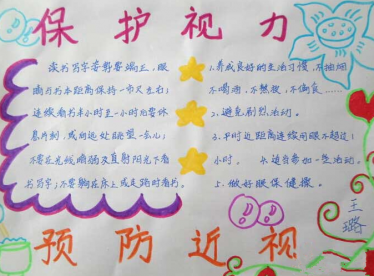 保护视力
读书写字姿势要端正,眼
睛与书本距离保持一市尺左右;
连续看书半小时至一小时后要休
息片刻,或向远处眺望一会儿;
不要在光线暗弱及直射阳光下看
书写字;不要躺在床上或走路时看书。
1、养成良好的生活习惯,不抽烟
不喝酒,不熬夜,不偏食……
2、避免剧烈活动。
3、平时近距离连续用眼不超过1
小时。 4、适当参加一些活动。
5、做好眼保健操。
王
璐
预防近视